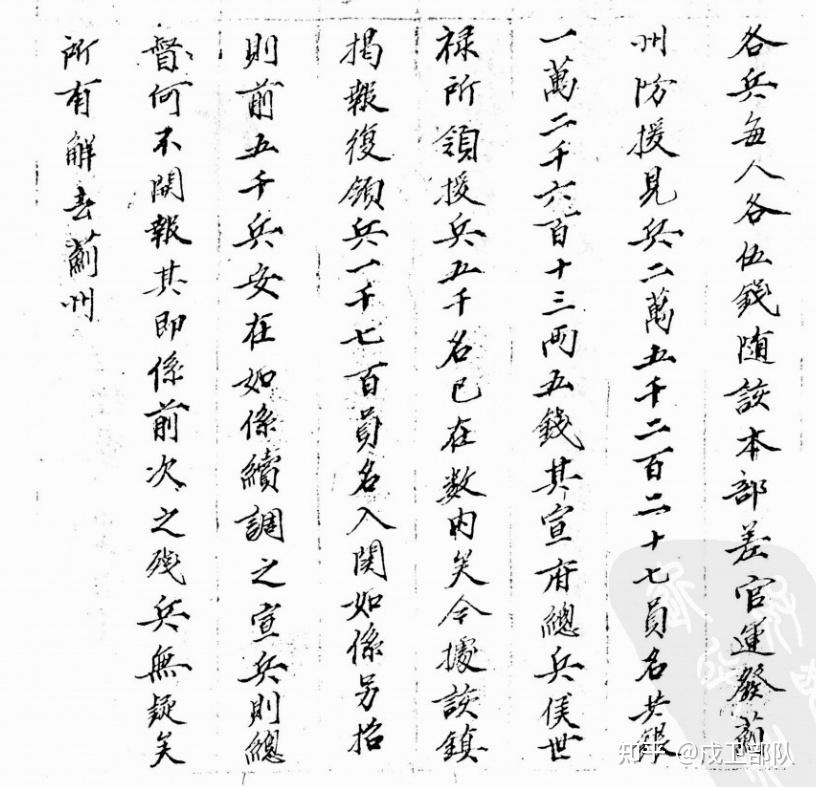 各兵每人各伍錢随該本部差官運發薊
州防援見兵二萬五千二百二十七員名共銀
一萬二千六百十三兩五錢其宣府總兵侯世
禄所領援兵五千名已在数内矣今據該鎮
揭報復領兵一千七百員名入関如係另招
則前五千兵安在如係續調之宣兵則總
督何不開報其即係前次之殘兵無疑矣
所有解去薊州
知乎 @戍卫部队